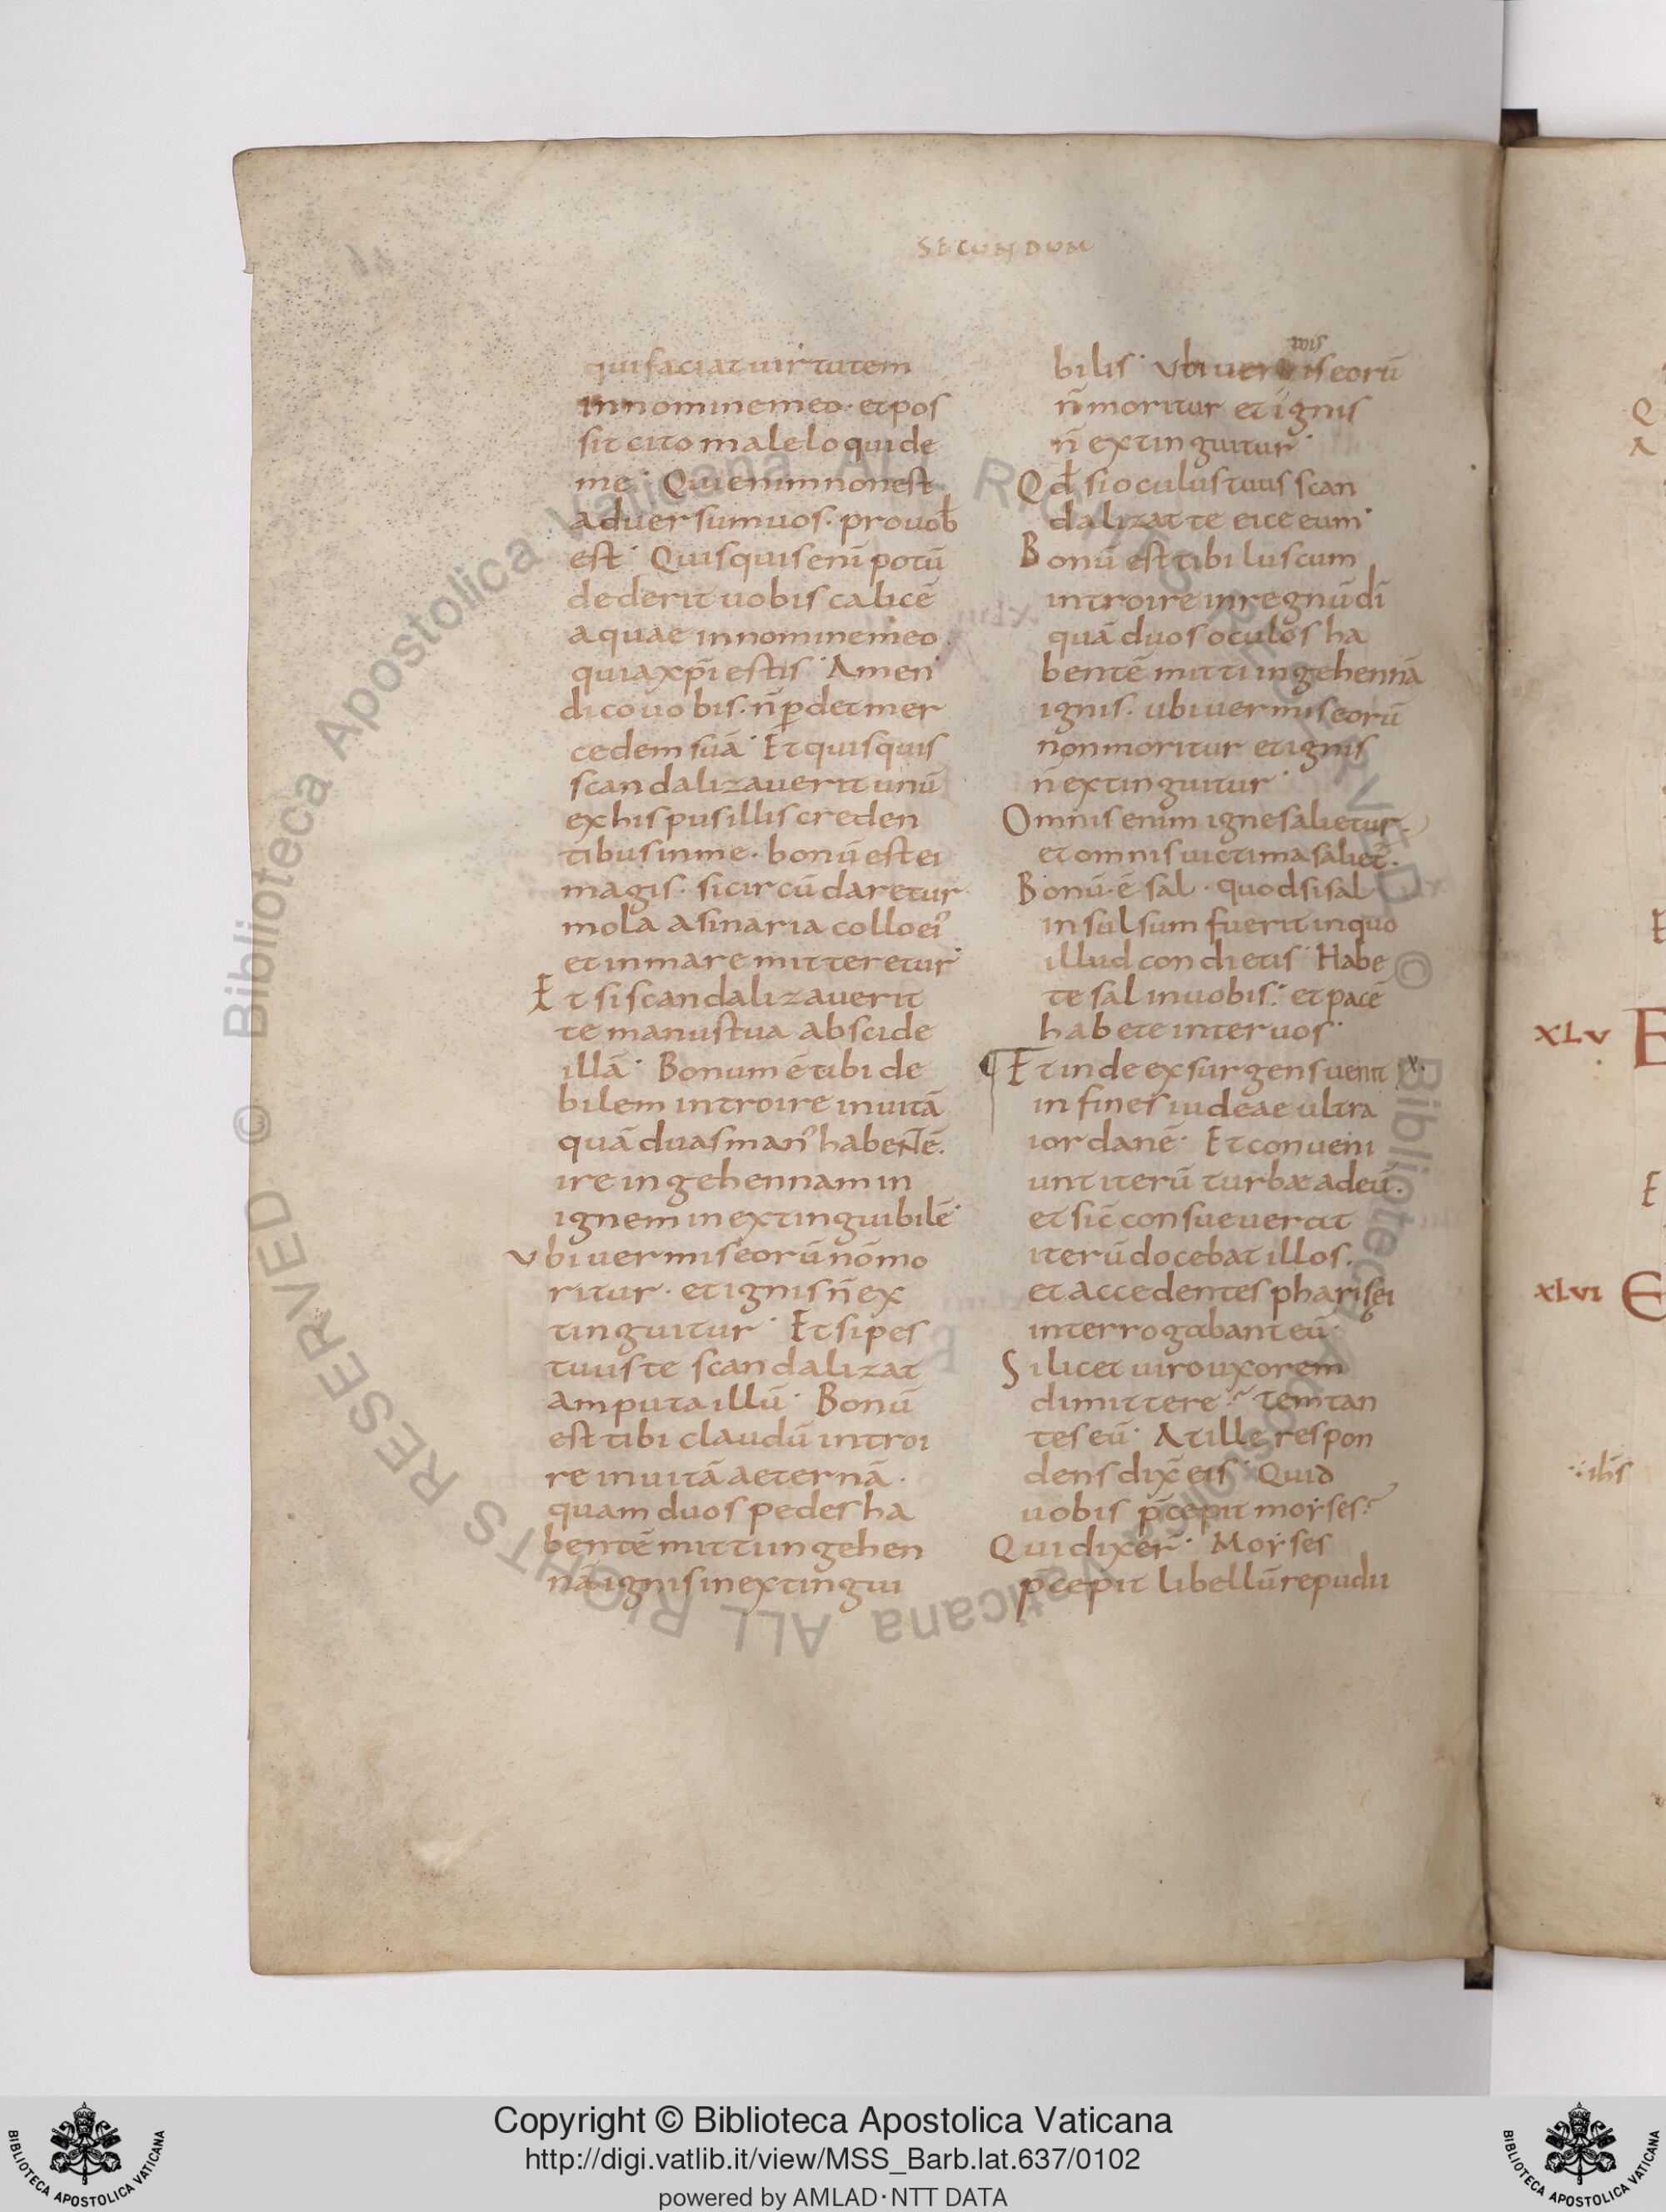 SECUNDUM
qui faciat uirtutem
in nomine meo · et pos
sit cito male loqui de
me · Qui enim non est
aduersum uos · pro uob̄
est · Quisquis eni̅ potū
dederit uobis calicē
aquae in nomine meo
quia xp̄i estis · Amen
dico uobis · n̄ ꝑdet mer
cedem suā · Et quisquis
scandalizauerit unū
ex his pusillis creden
tibus in me · bonū est ei
magis · si circūdaretur
mola asinaria collo ei᾽
et in mare mitteretur ·
Et si scandalizauerit
te manus tua abscide
illā · Bonum ē tibi de
bilem introire in uitā
quā duas man᾽ habentē ·
ire in gehennam in
ignem inextinguibilē ·
Vbi uermis eorū nō mo
ritur · et ignis n̄ ex
tinguitur · Et si pes
tuus te scandalizat
amputa illū · Bonū
est tibi claudū introi
re in uitā aeternā ·
quam duos pedes ha
bentē mitti in gehen
nā ignis inextingui
bilis · Vbi uermis eorū
n̄ moritur et ignis
n̄ extinguitur ·
Qd̄ si oculus tuus scan
dalizat te eice eum ·
Bonū est tibi luscum
introire in regnū dī
quā duos oculos ha
bentē mitti in gehennā
ignis · ubi uermis eorū
non moritur et ignis
n̄ extinguitur ·
Omnis enim igne salietur ·
et omnis uictima saliet᷑ ·
Bonū · ē sal · quod si sal
insulsum fuerit in quo
illud condietis · Habe
te sal in uobis · et pacē
habete inter uos ·
Et inde exsurgens uenit
in fines iudeae ultra
iordanē · Et conueni
unt iterū turbae ad eū ·
et sic̄ consueuerat
iterū docebat illos ·
et accedentes pharisęi
interrogabant eū ·
Si licet uiro uxorem
dimittere? temtan
tes eū · At ille respon
dens dix̄ eis · Quid
uobis p̄cepit moẏses?
Qui dixer̄ · Moẏses
p̄cepit libellū repudii
XLV
E
XLVI
E
ih̄s
Copyright © Biblioteca Apostolica Vaticana
http://digi.vatlib.it/view/MSS_Barb.lat.637/0102
powered by AMLAD·NTT DATA
BIBLIOTECA APOSTOLICA VATICANA
BIBLIOTECA APOSTOLICA VATICANA
© Biblioteca Apostolica Vaticana ALL RIGHTS RESERVED © Biblioteca Apostolica Vaticana ALL RIGHTS RESERVED